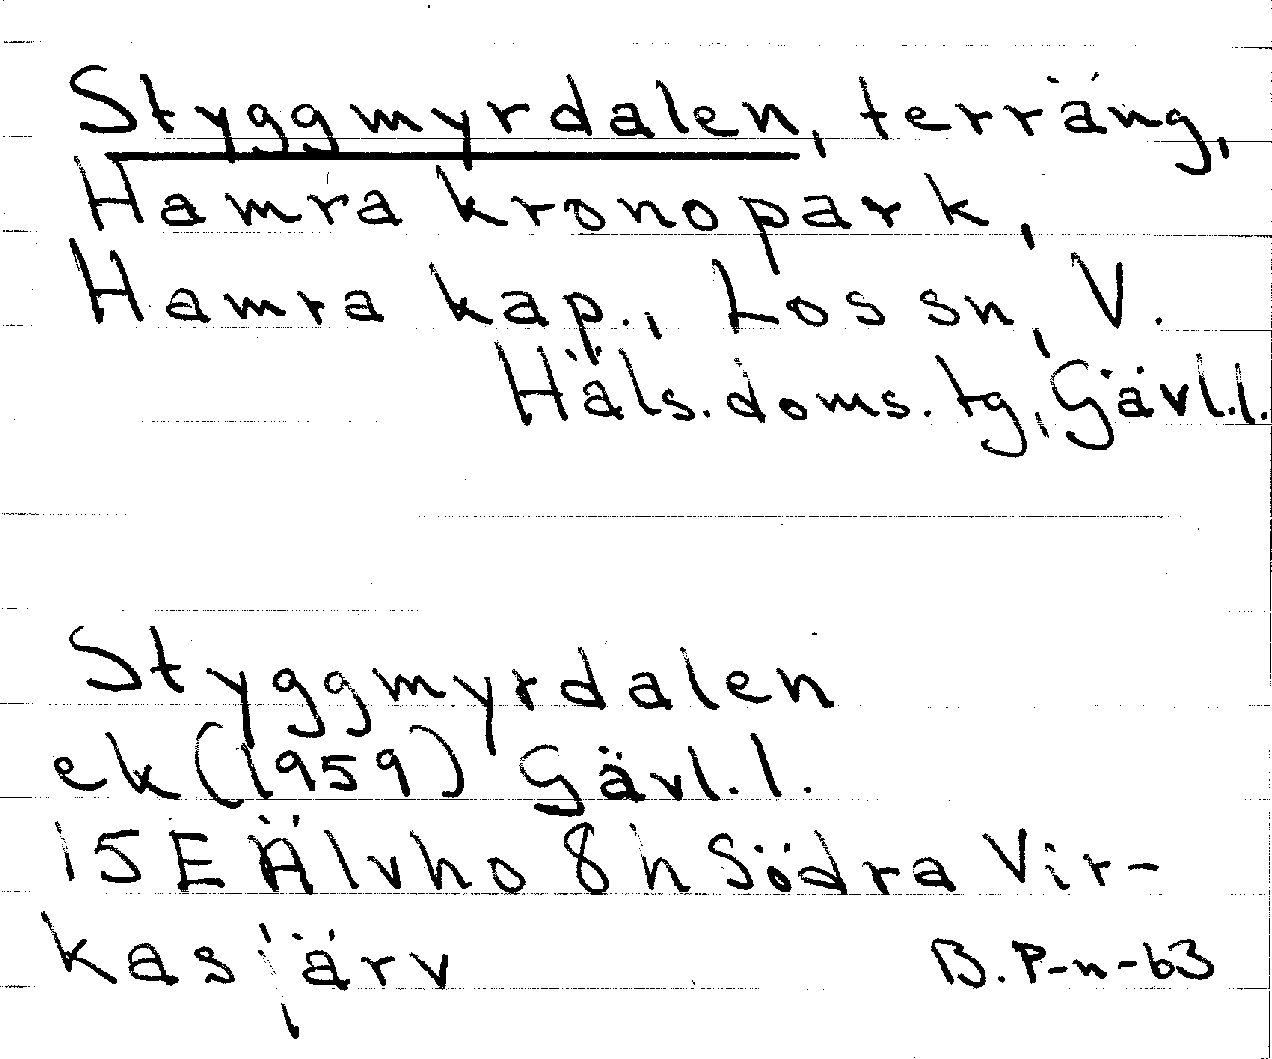 Styggmyrdalen, terräng,
Hamra kronopark,
Hamra kap., Los sn, V.
Häls. doms. tg, Gävl.l.
Styggmyrdalen
ek (1959) Gävl.l.
15E Älvho 8h Södra Vir-
kasjärv
B. P-n-63